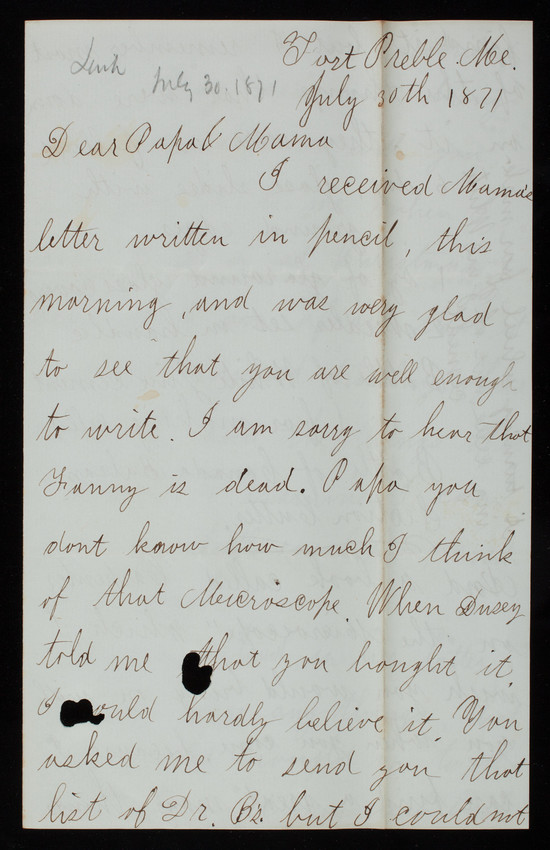 Fort Preble. Me.
July 30, 1871
July 30th 1871
Dear Papa & Mama
I received Mama's
letter written in pencil, this
morning, and was very glad
to see that you are well enough
to write. I am sorry to hear that
Fanny is dead. Papa you
dont know how much I think
of that Meicroscope. When Dusey
told me that you bought it,
I ould hardly believe it. You
asked me to send you that
list of Dr. Bz. but I could not